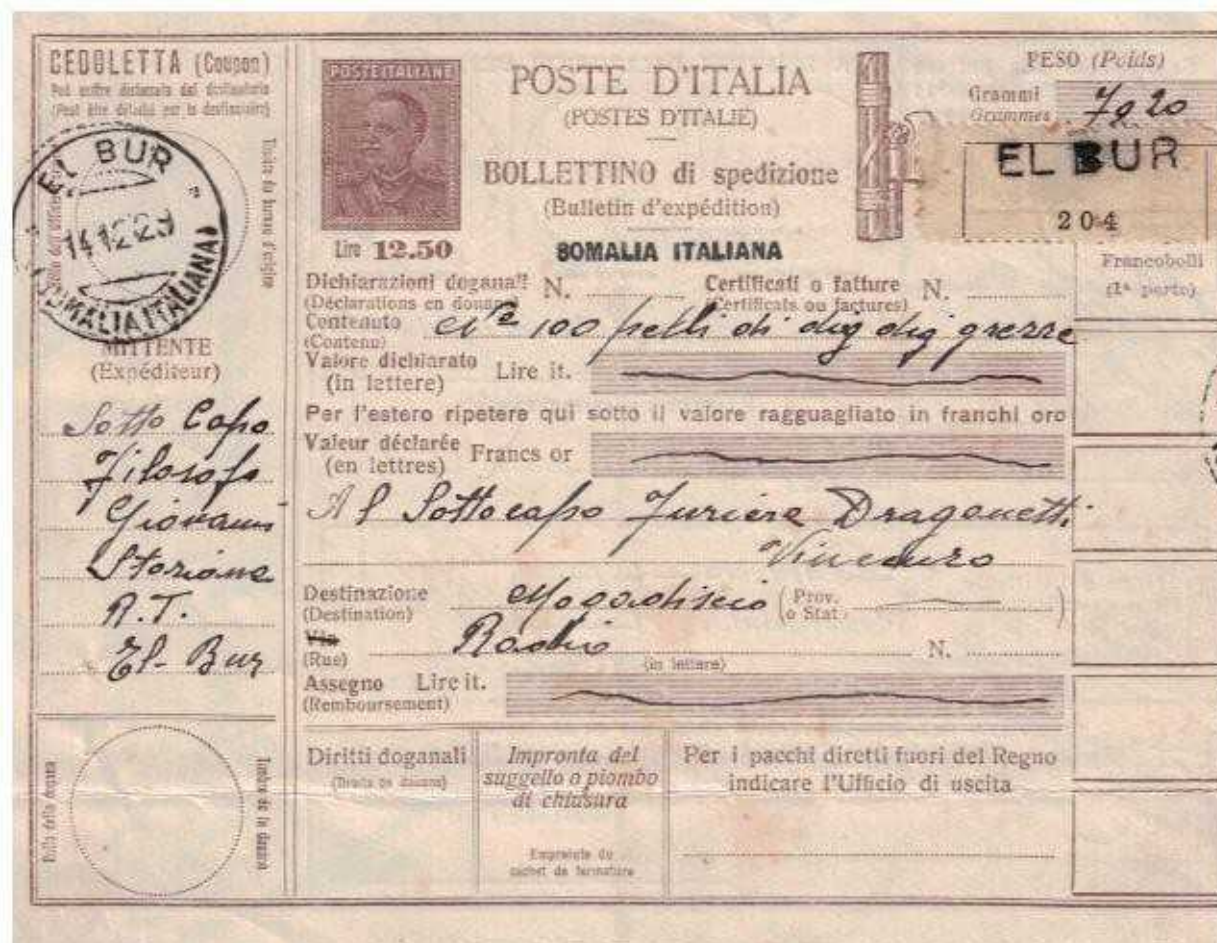 CEDOLETTA (Coupon)
Può essere distaccata dal destinatario
(Peut être détaché par le destinataire)
EL BUR
14.12.29
SOMALIA ITALIANA
Timbre du bureau d'origine
MITTENTE
(Expéditeur)
Sotto Capo
Filosofo
Giovanni
Stazione
R.T.
El-Bur
Bollo della dogana
Timbre de la douane
POSTE ITALIANE
Lire 12.50
POSTE D'ITALIA
(POSTES D'ITALIE)
BOLLETTINO di spedizione
(Bulletin d'expédition)
SOMALIA ITALIANA
PESO (Poids)
Grammi
Grammes
7920
EL BUR
204
Francobolli
(1ª parte)
Dichiarazioni doganali N. Certificati o fatture N.
(Déclarations en douane) (Certificats ou factures)
Contenuto
(Contenu)
N° 100 pelli di dig dig grezze
Valore dichiarato
(in lettere)
Lire it.
Per l'estero ripetere qui sotto il valore ragguagliato in franchi oro
Valeur déclarée
(en lettres)
Francs or
Al Sottocapo Furiere Dragonetti
Vincenzo
Destinazione
(Destination)
Mogadiscio
(Prov.
o Stat. )
Via
(Rue)
Radio
N.
(in lettere)
Assegno Lire it.
(Remboursement)
Diritti doganali
(Droits de douane)
Impronta del
suggello o piombo
di chiusura
Empreinte du
cachet de fermeture
Per i pacchi diretti fuori del Regno
indicare l'Ufficio di uscita